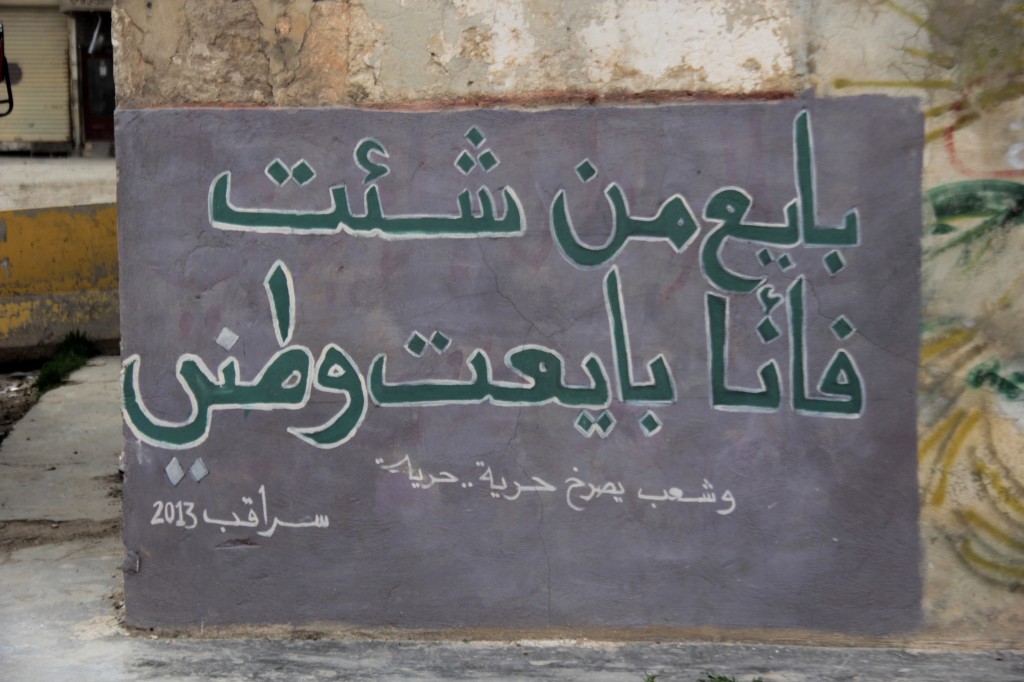 بايع من شئت
فأنا بايعت وطني
وشعب يصرخ حرية.. حرية
سراقب 2013